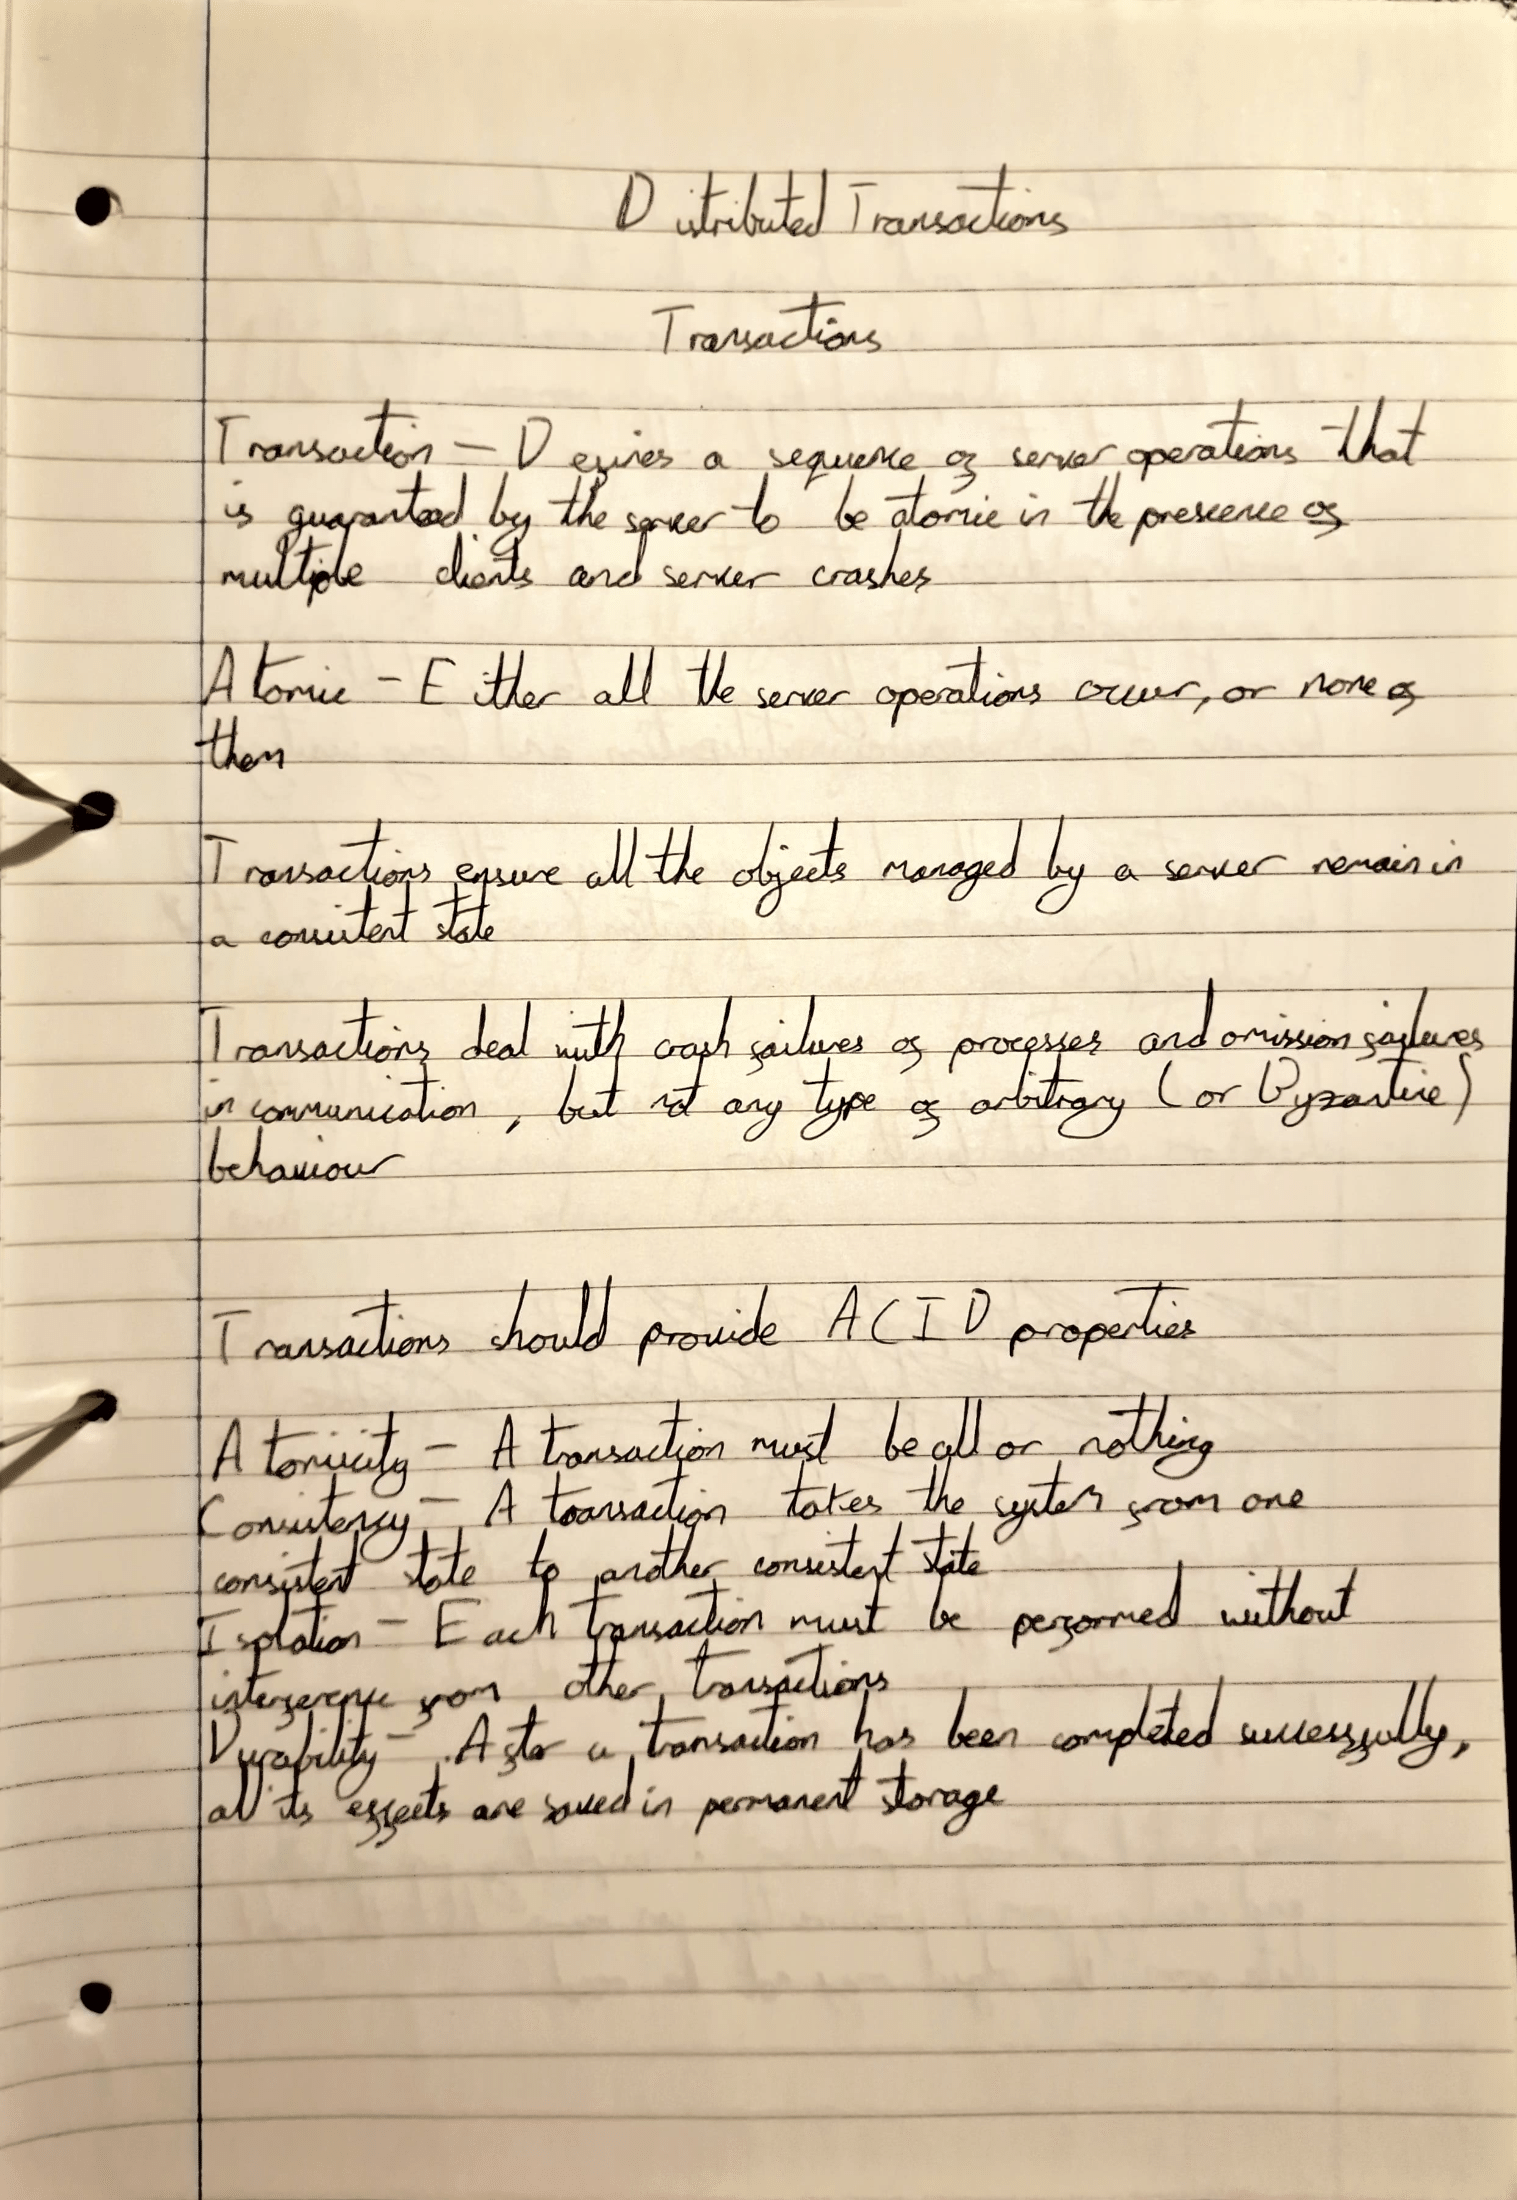 Distributed Transactions
Transactions
Transaction – Defines a sequence of server operations that
is guaranteed by the server to be atomic in the prescence of
multiple clients and server crashes
Atomic – Either all the server operations occur, or none of
them
Transactions ensure all the objects managed by a server remain in
a consistent state
Transactions deal with crash failures of processes and omission failures
in communication, but not any type of arbitrary (or Byzantine)
behaviour
Transactions should provide ACID properties
Atomicity – A transaction must be all or nothing
Consistency – A transaction takes the system from one
consistent state to another consistent state
Isolation – Each transaction must be performed without
interference from other transactions
Durability – After a transaction has been completed successfully,
all its effects are saved in permanent storage